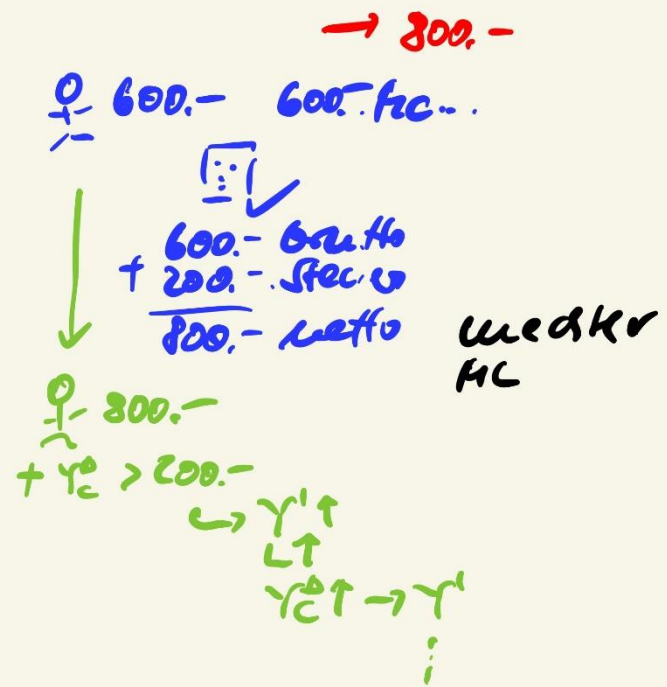 → 800.-
600.- 600.-
600.- Brutto
+ 200.- Steuer
800.- netto
800.-
+ Y_C^D > 200.-
↳ Y' ↑
L ↑
Y_C^D ↑ → Y'